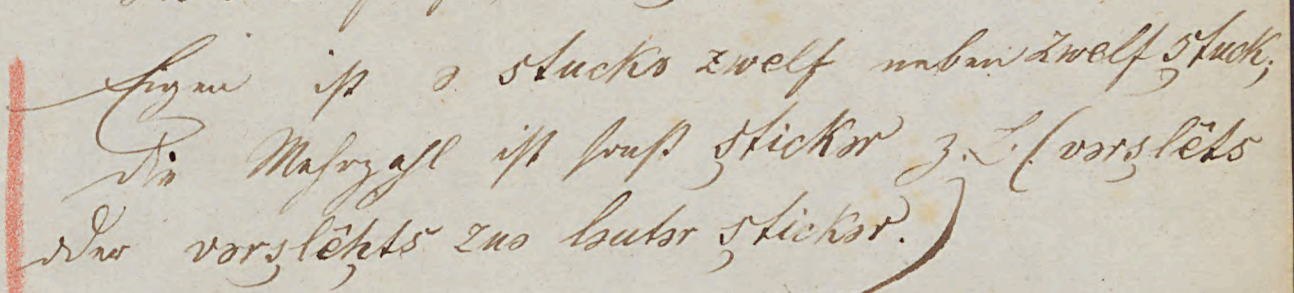 Eigen ist ə stuckə zwelf neben zwelf ştuck;
die Mehrzahl ist sonst ştickər z. L. (vərşlêts
oder vərşlêḫts zuə lautər ştickər.)